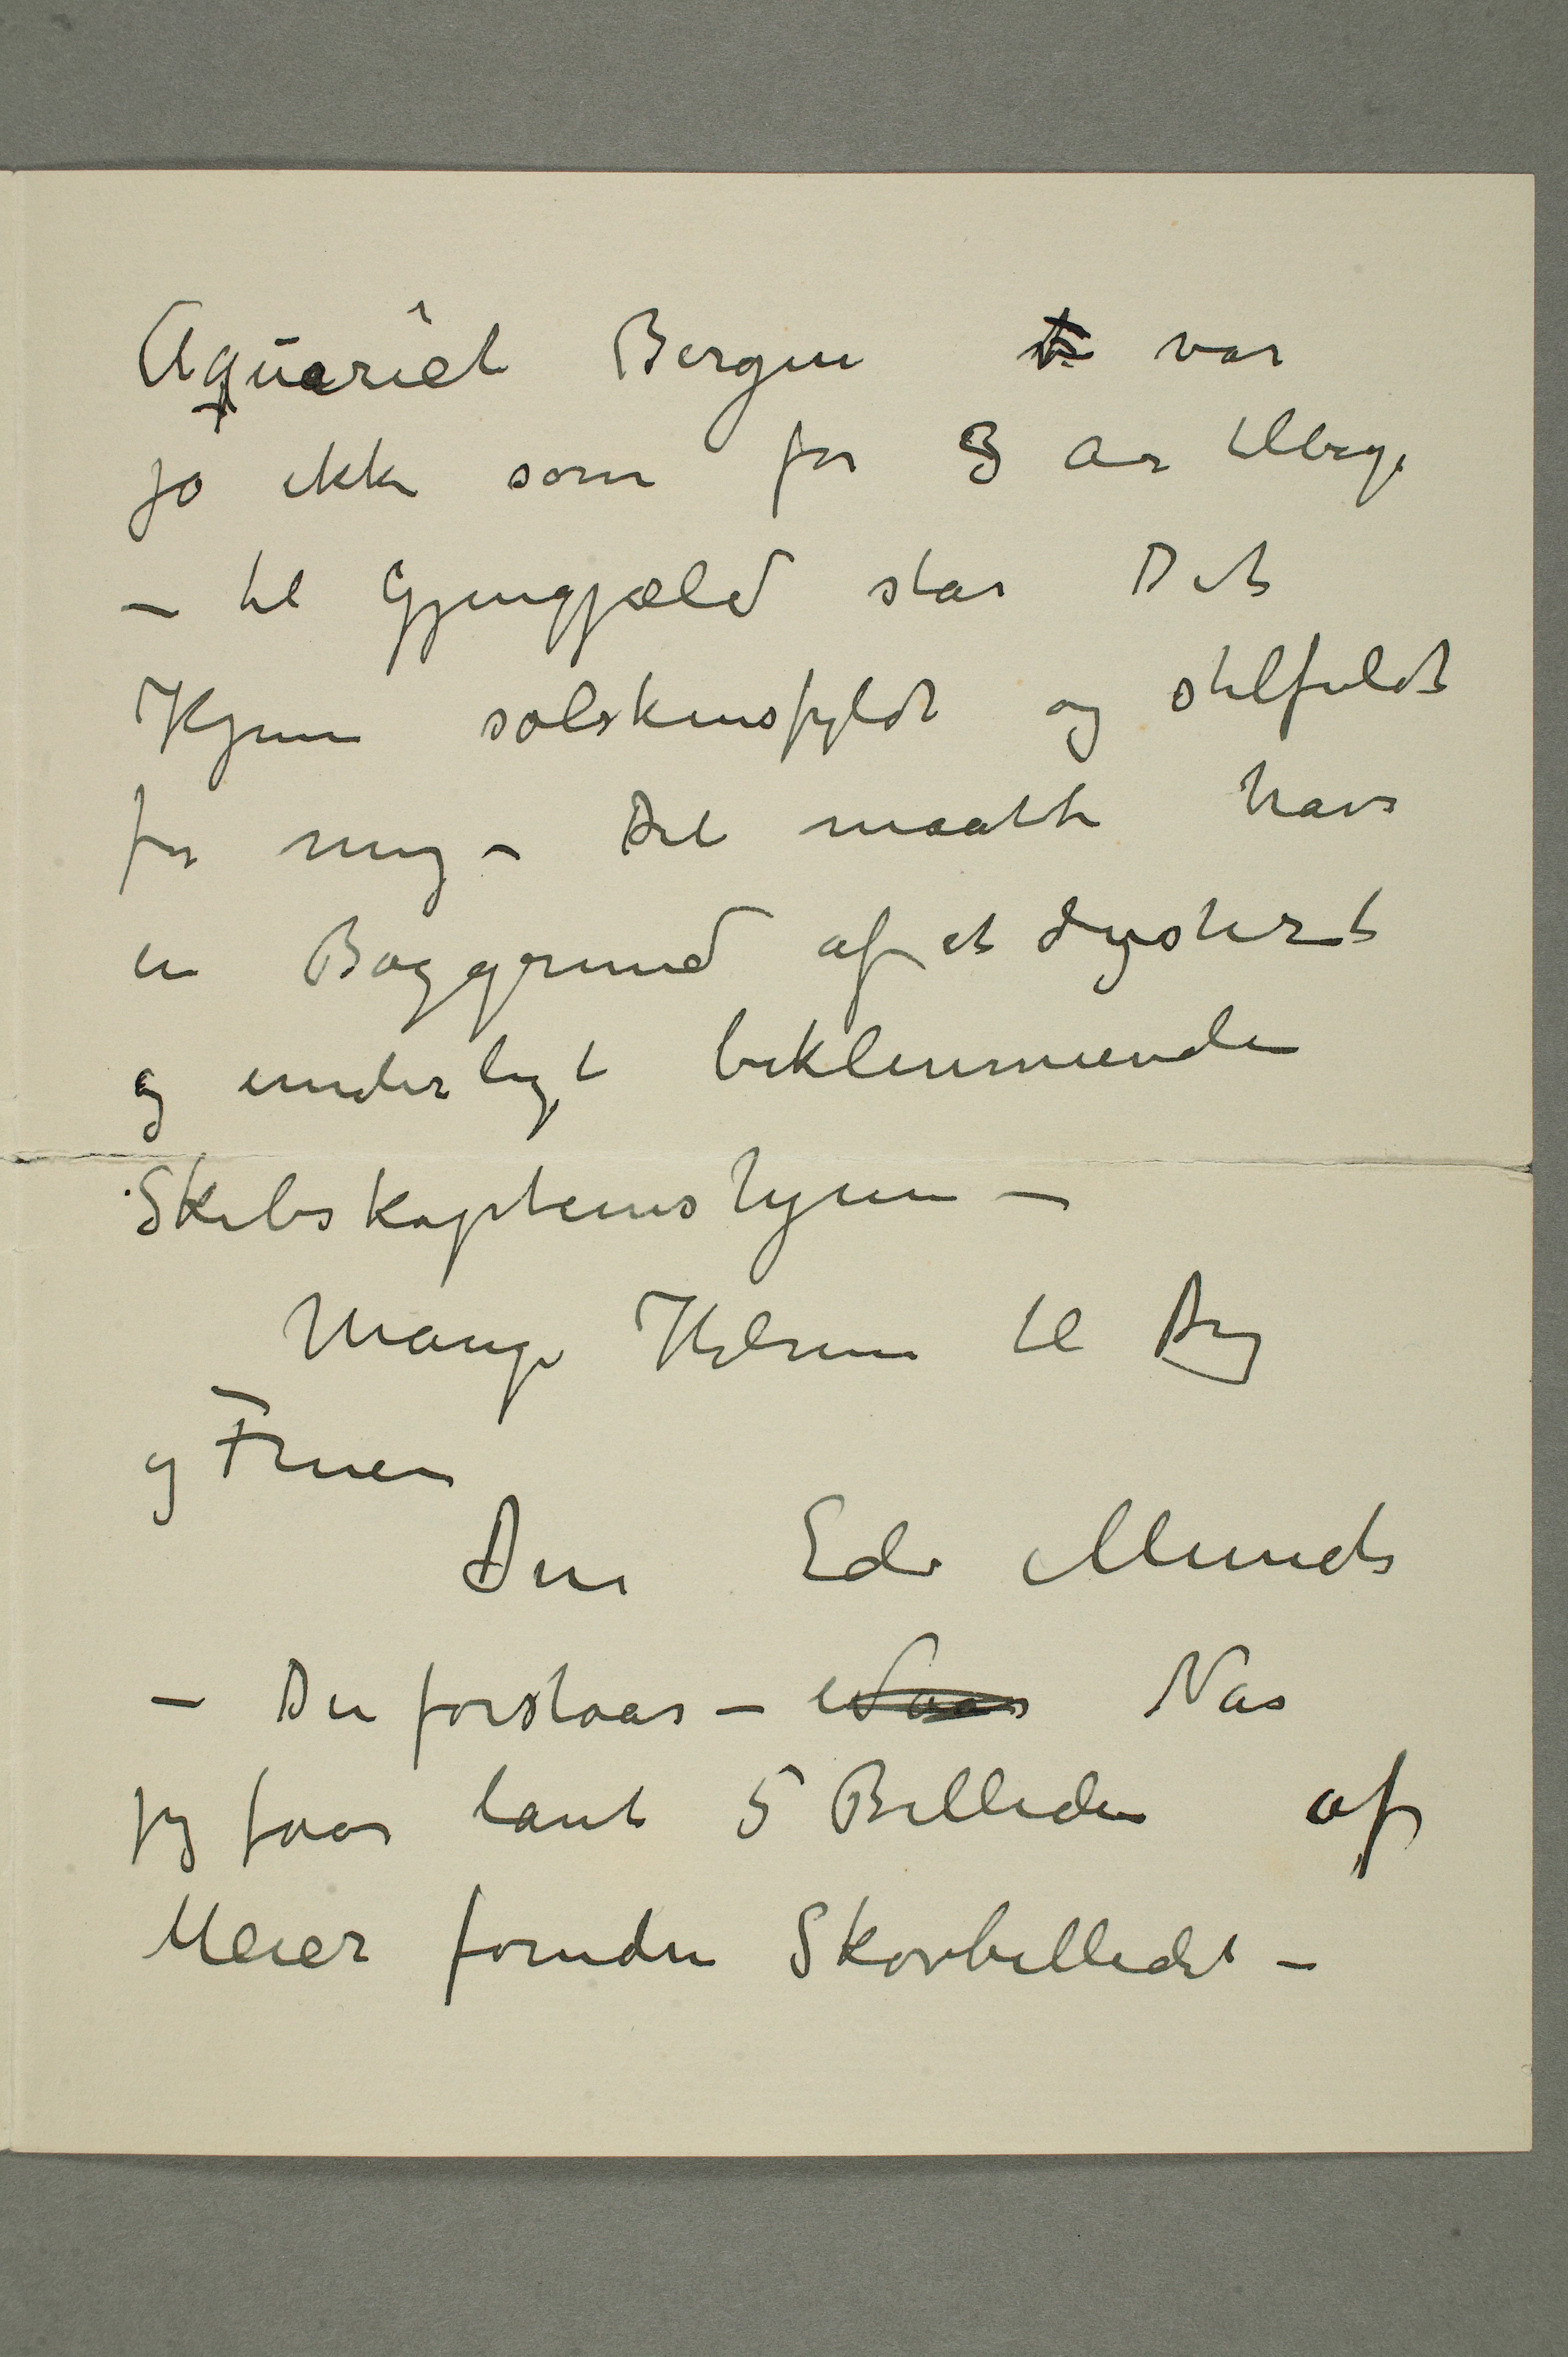 Aquariet Bergen var
jo ikke som for 3 aar tilbage
– til Gjengjæld staar Dit
Hjem solskinsfyldt og stilfuldt
for mig – Det maatte have
en Baggrund af et dystert
og underligt beklemmende
Skibskapteinshjem –
Mange Hilsener til Dig
og Fruen
Din Edv Munch
– Du forstaar – Naar
jeg faar laant 5 Billeder af
Meier foruden Skovbilledet –